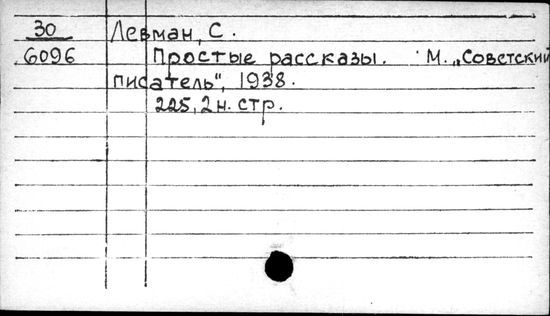 30 Левман, С.
6096 Простые рассказы. М. „Советский
писатель", 1938.
225, 2 н. стр.